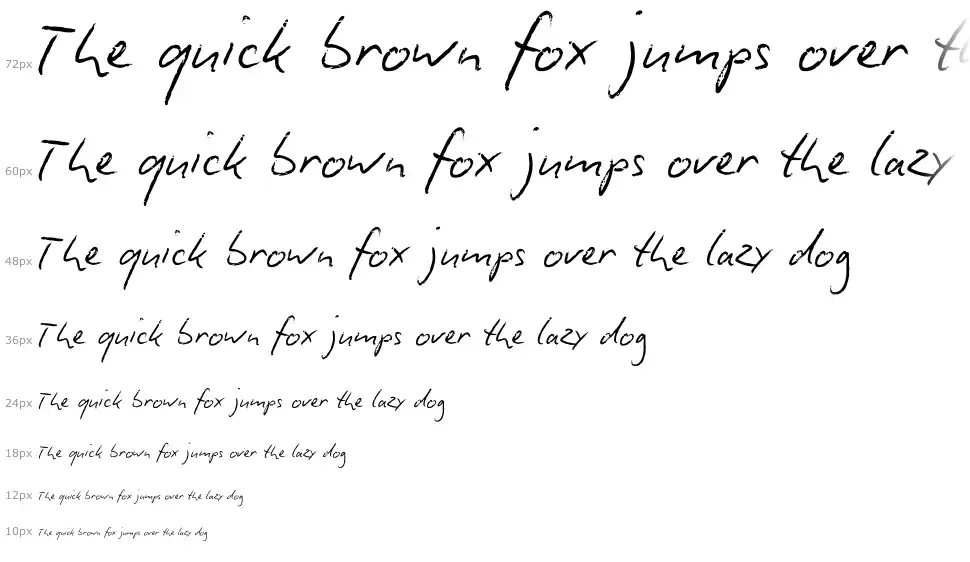 72px The quick brown fox jumps over t
60px The quick brown fox jumps over the lazy
48px The quick brown fox jumps over the lazy dog
36px The quick brown fox jumps over the lazy dog
24px The quick brown fox jumps over the lazy dog
18px The quick brown fox jumps over the lazy dog
12px The quick brown fox jumps over the lazy dog
10px The quick brown fox jumps over the lazy dog